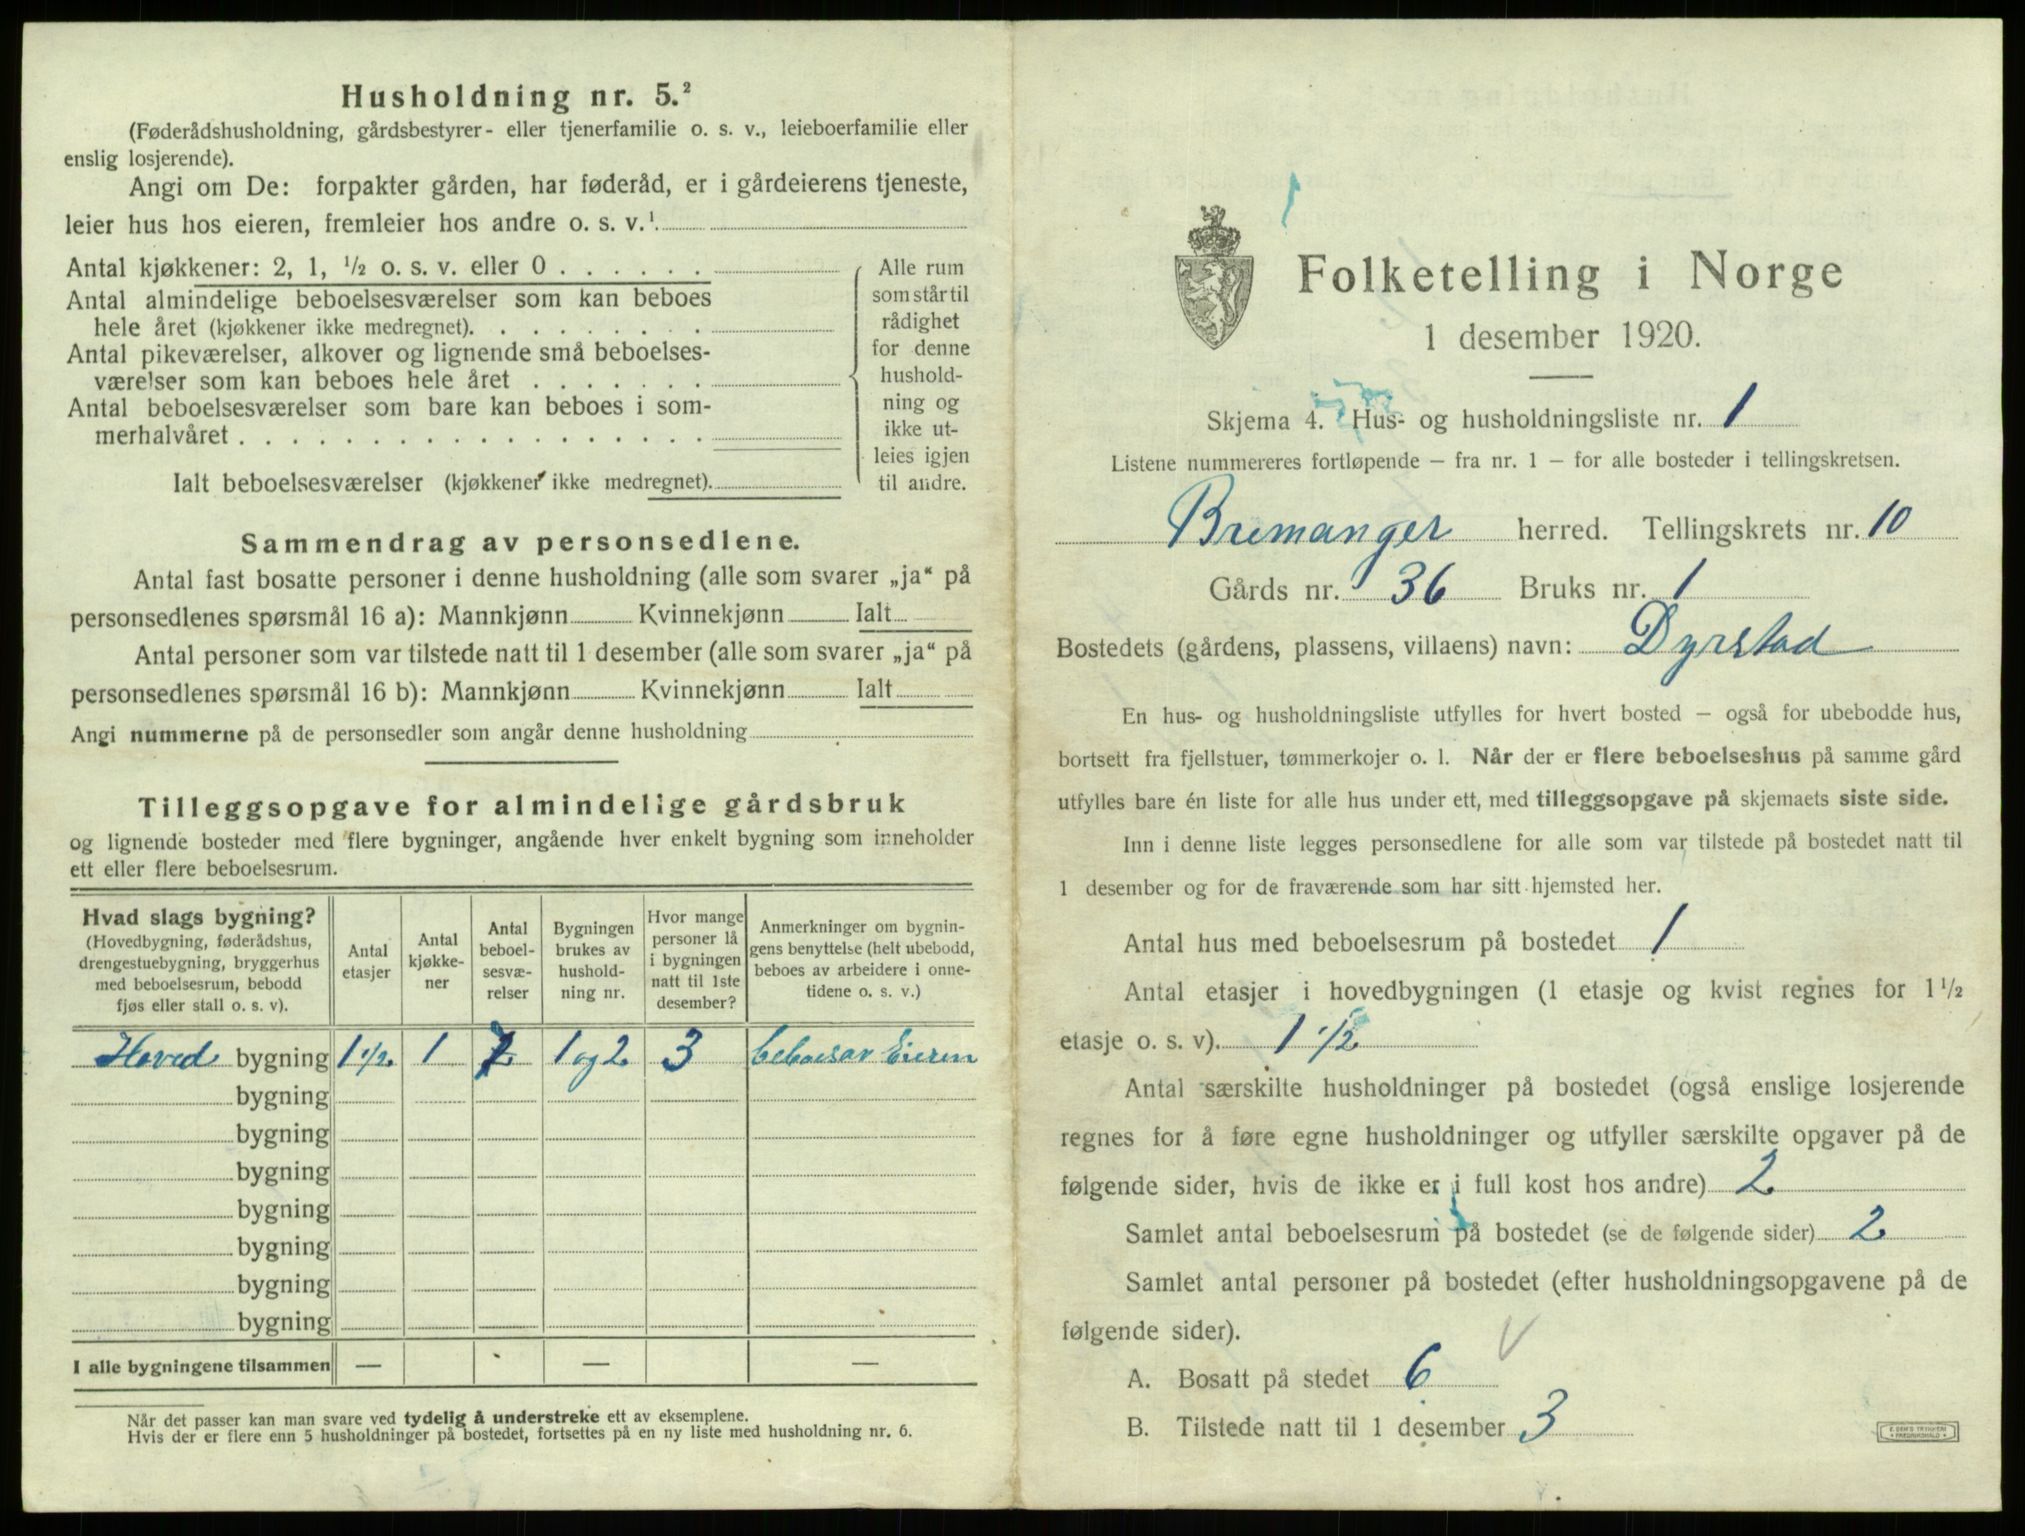 Husholdning nr. 5.²
(Føderådshusholdning, gårdsbestyrer- eller tjenerfamilie o. s. v., leieboerfamilie eller
enslig losjerende).
Angi om De: forpakter gården, har føderåd, er i gårdeierens tjeneste,
leier hus hos eieren, fremleier hos andre o. s. v.¹
Antal kjøkkener: 2, 1, ½ o. s. v. eller 0 . . . . . .
Antal almindelige beboelsesværelser som kan beboes
hele året (kjøkkener ikke medregnet). . . . . . . . .
Antal pikeværelser, alkover og lignende små beboelses-
værelser som kan beboes hele året . . . . . . .
Antal beboelsesværelser som bare kan beboes i som-
merhalvåret . . . . . . . . . . . . . . . . . .
Ialt beboelsesværelser (kjøkkener ikke medregnet).
Alle rum
som står til
rådighet
for denne
hushold-
ning og
ikke ut-
leies igjen
til andre.
Sammendrag av personsedlene.
Antal fast bosatte personer i denne husholdning (alle som svarer „ja“ på
personsedlenes spørsmål 16 a): Mannkjønn Kvinnekjønn Ialt
Antal personer som var tilstede natt til 1 desember (alle som svarer „ja“ på
personsedlenes spørsmål 16 b): Mannkjønn Kvinnekjønn Ialt
Angi nummerne på de personsedler som angår denne husholdning
Tilleggsopgave for almindelige gårdsbruk
og lignende bosteder med flere bygninger, angående hver enkelt bygning som inneholder
ett eller flere beboelsesrum.
Hvad slags bygning?
(Hovedbygning, føderådshus,
drengestuebygning, bryggerhus
med beboelsesrum, bebodd
fjøs eller stall o. s. v).
Antal
etasjer
Antal
kjøkke-
ner
Antal
beboel-
sesvæ-
relser
Bygningen
brukes av
hushold-
ning nr.
Hvor mange
personer lå
i bygningen
natt til 1ste
desember?
Anmerkninger om bygnin-
gens benyttelse (helt ubebodd,
beboes av arbeidere i onne-
tidene o. s. v.)
Hoved bygning 1 ½ 1 2 1 og 2 3 beboes av Eieren
bygning
bygning
bygning
bygning
bygning
bygning
bygning
I alle bygningene tilsammen — — —
Når det passer kan man svare ved tydelig å understreke ett av eksemplene.
Hvis der er flere enn 5 husholdninger på bostedet, fortsettes på en ny liste med husholdning nr. 6.
Folketelling i Norge
1 desember 1920.
Skjema 4. Hus- og husholdningsliste nr. 1
Listene nummereres fortløpende – fra nr. 1 – for alle bosteder i tellingskretsen.
Bremanger herred. Tellingskrets nr. 10
Gårds nr. 36 Bruks nr. 1
Bostedets (gårdens, plassens, villaens) navn: Dyrstad
En hus- og husholdningsliste utfylles for hvert bosted – også for ubebodde hus,
bortsett fra fjellstuer, tømmerkojer o. l. Når der er flere beboelseshus på samme gård
utfylles bare én liste for alle hus under ett, med tilleggsopgave på skjemaets siste side.
Inn i denne liste legges personsedlene for alle som var tilstede på bostedet natt til
1 desember og for de fraværende som har sitt hjemsted her.
Antal hus med beboelsesrum på bostedet 1
Antal etasjer i hovedbygningen (1 etasje og kvist regnes for 1 ½
etasje o. s. v). 1 ½
Antal særskilte husholdninger på bostedet (også enslige losjerende
regnes for å føre egne husholdninger og utfyller særskilte opgaver på de
følgende sider, hvis de ikke er i full kost hos andre) 2
Samlet antal beboelsesrum på bostedet (se de følgende sider) 2
Samlet antal personer på bostedet (efter husholdningsopgavene på de
følgende sider).
A. Bosatt på stedet 6
B. Tilstede natt til 1 desember 3